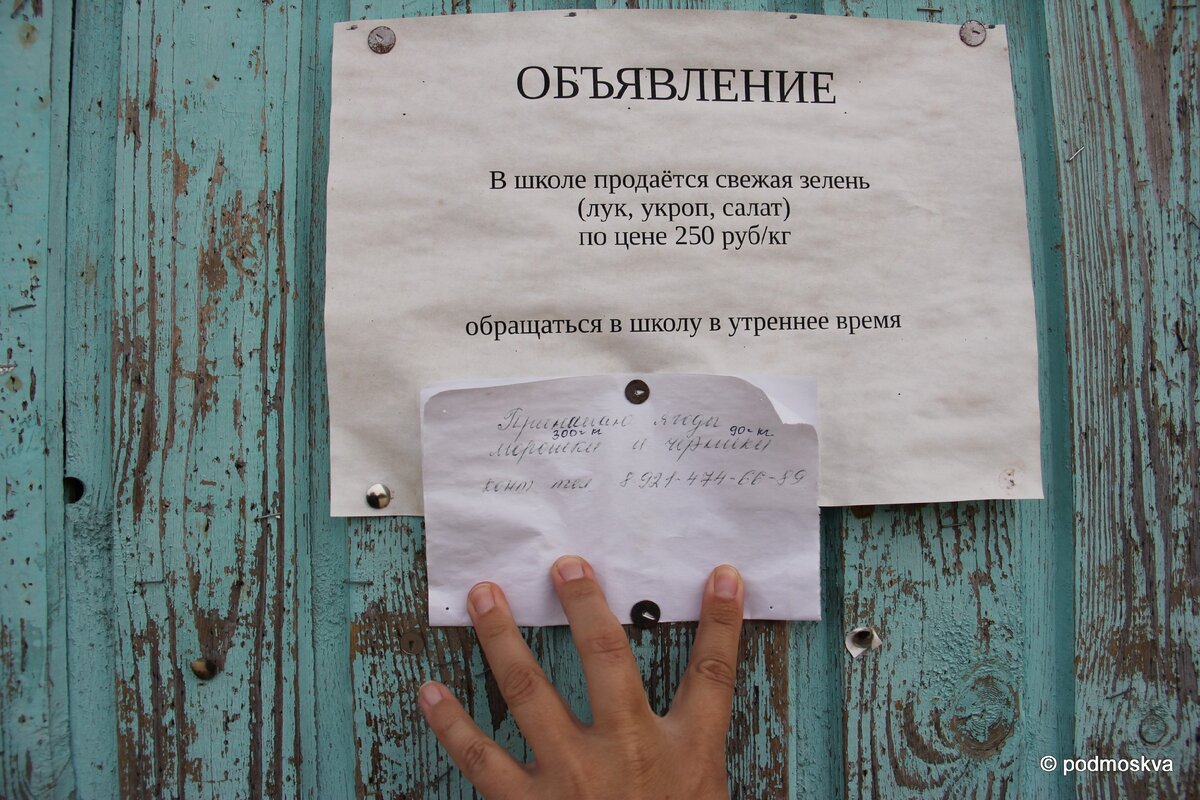 ОБЪЯВЛЕНИЕ
В школе продаётся свежая зелень
(лук, укроп, салат)
по цене 250 руб/кг
обращаться в школу в утреннее время
Принимаю ягоды
300 г кг 90 г кг
морошки и черники
конт тел 8 921-474-66-89
© podmoskva